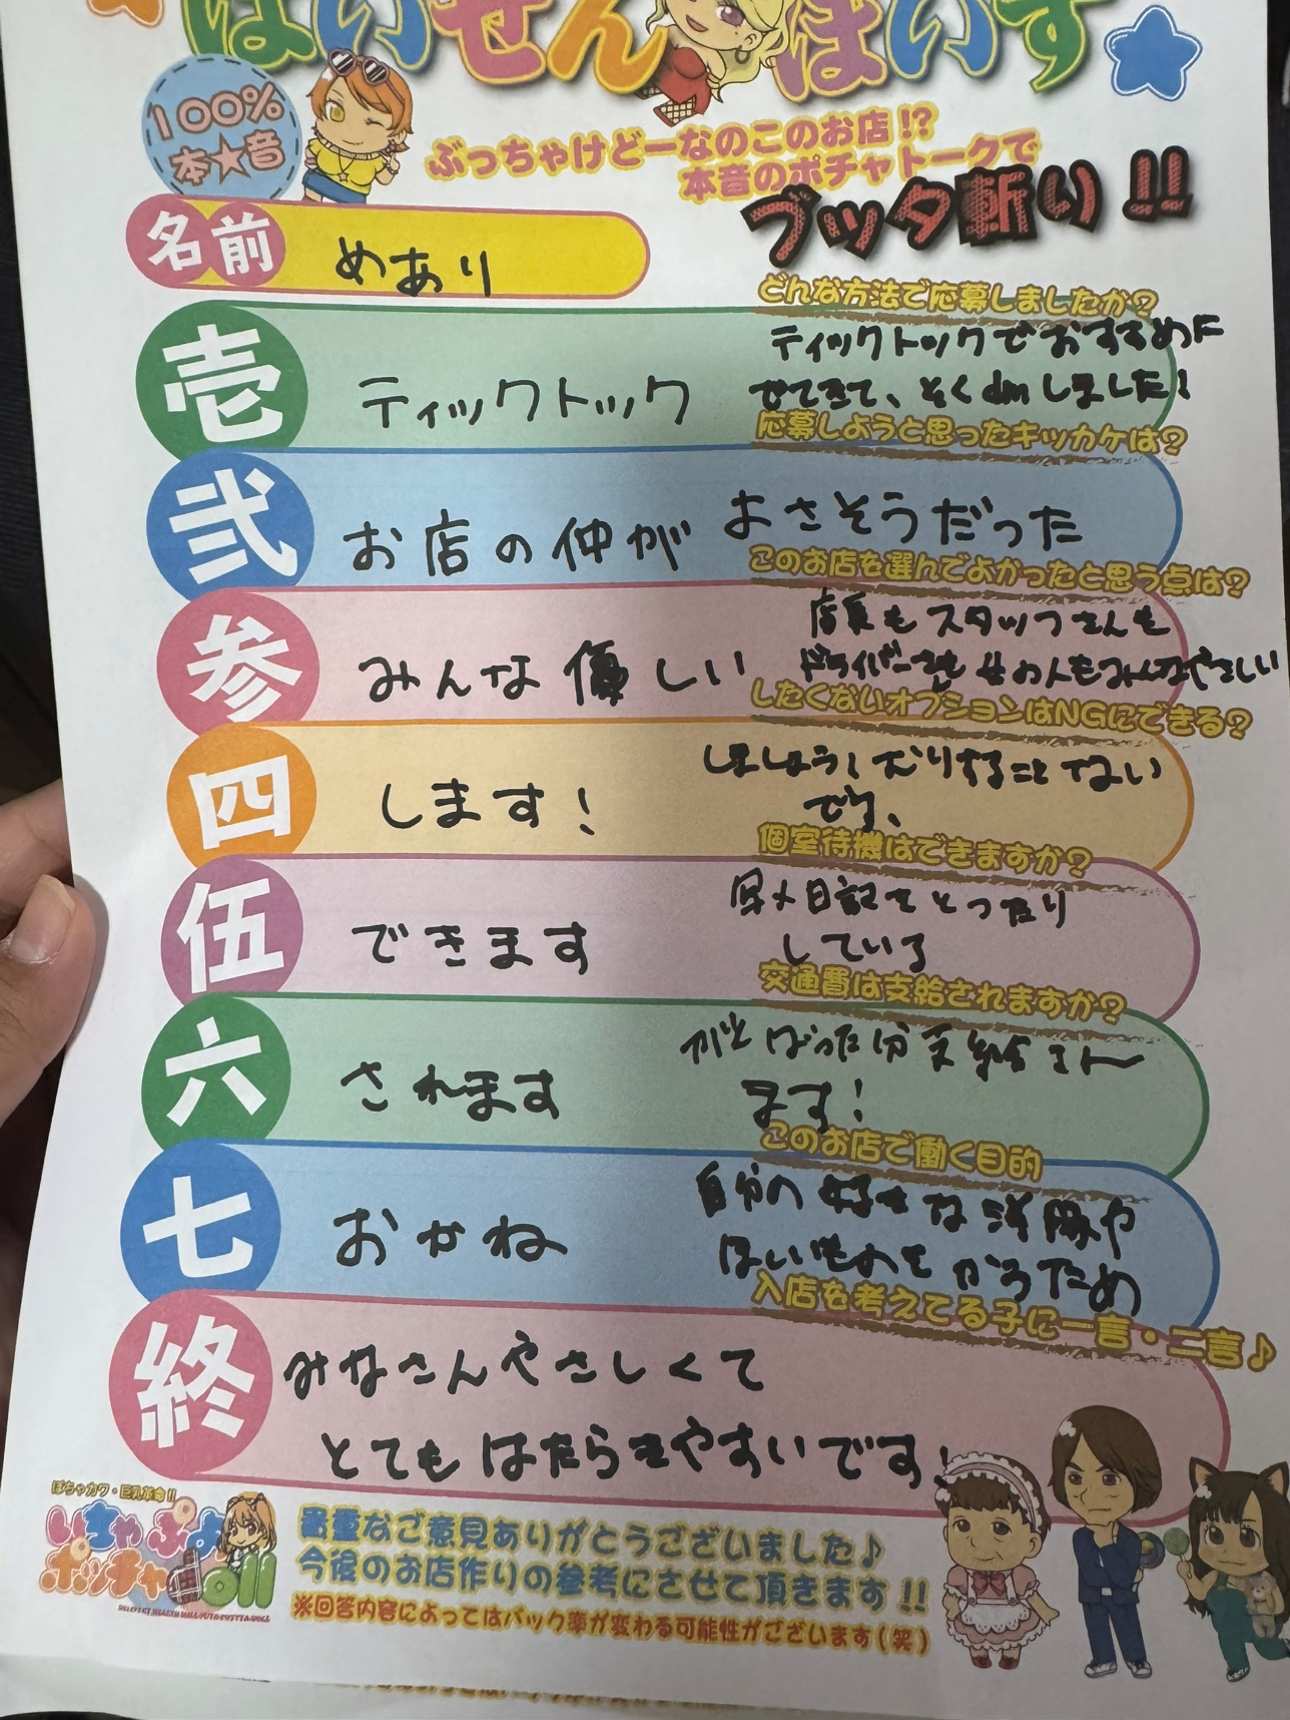 ぱいせんぼいす
100%
本★音
ぶっちゃけどーなのこのお店!?
本音のポチャトークで
ブッタ斬り!!
名前
めあり
どんな方法で応募しましたか?
壱
ティックトック
ティックトックでおすすめに
せてきて、そくdmしました!
応募しようと思ったキッカケは?
弐
お店の仲が よさそうだった
このお店を選んでよかったと思う点は?
参
みんな優しい
店長もスタッフさんも
ドライバーさも 女の人もみんなやさしい
したくないオプションはNGにできる?
四
します!
しましょう!むりすることでない
です、
個室待機はできますか?
伍
できます
写メ日記をとったり
している
交通費は支給されますか?
六
されます
がんばった分支給され
ます!
このお店で働く目的
七
おかね
自分の好きな洋服や
ほしいものをかうため
入店を考えてる子に一言・二言♪
終
みなさんやさしくて
とてもはたらきやすいです!
ぽちゃカワ・巨乳革命!!
いちゃぷよ
ポッチャdoll
貴重なご意見ありがとうございました♪
今後のお店作りの参考にさせて頂きます!!
※回答内容によってはバック率が変わる可能性がございます(笑)